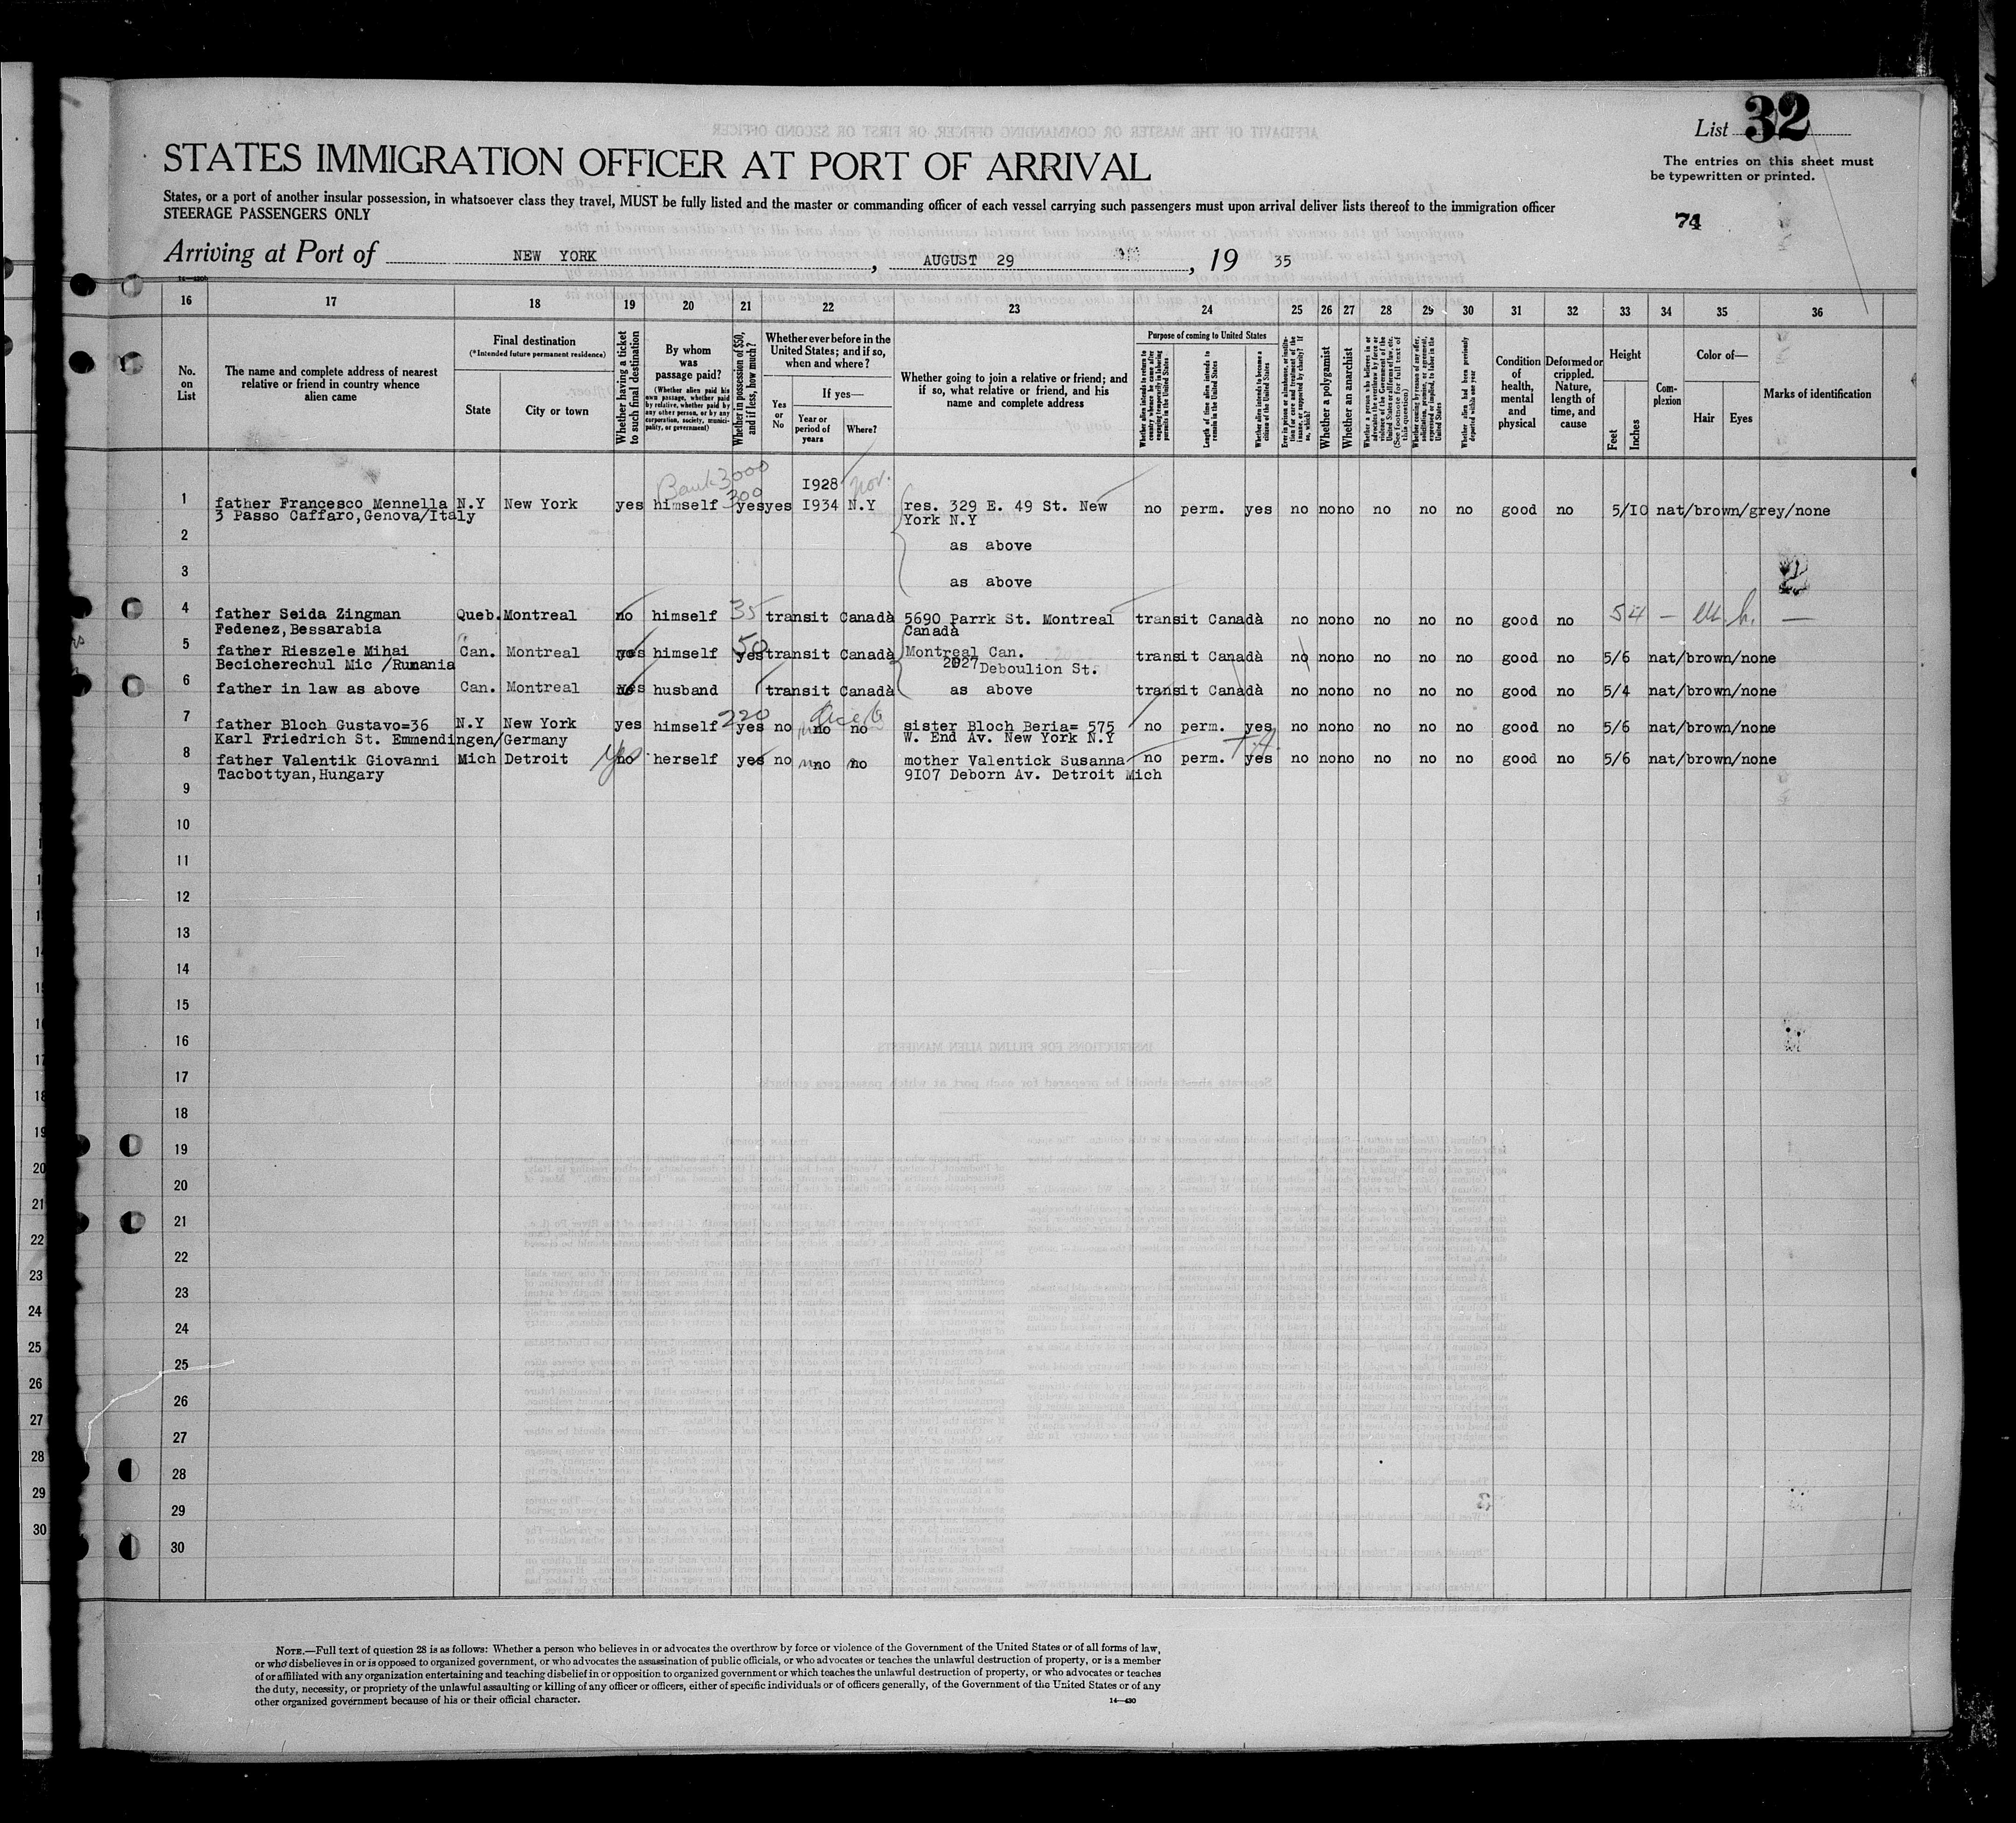 List 32
STATES IMMIGRATION OFFICER AT PORT OF ARRIVAL
The entries on this sheet must
be typewritten or printed.
States, or a port of another insular possession, in whatsoever class they travel, MUST be fully listed and the master or commanding officer of each vessel carrying such passengers must upon arrival deliver lists thereof to the immigration officer
STEERAGE PASSENGERS ONLY
74
Arriving at Port of NEW YORK, AUGUST 29, 19 35
16 17 18 19 20 21 22 23 24 25 26 27 28 29 30 31 32 33 34 35 36
No. on List
The name and complete address of nearest
relative or friend in country whence
alien came
Final destination
(*Intended future permanent residence)
State
City or town
Whether having a ticket to such final destination
By whom was passage paid?
(Whether alien paid his own passage, whether paid by relative, whether paid by any other person, or by any corporation, society, municipality, or government)
Whether in possession of $50, and if less, how much?
Whether ever before in the United States; and if so, when and where?
Yes or No
If yes—
Year or period of years
Where?
Whether going to join a relative or friend; and
if so, what relative or friend, and his
name and complete address
Purpose of coming to United States
Whether alien intends to return to country whence he came after engaging temporarily in laboring pursuits in the United States
Length of time alien intends to remain in the United States
Whether alien intends to become a citizen of the United States
Ever in prison or almshouse, or institution for care and treatment of the insane, or supported by charity? If so, which?
Whether a polygamist
Whether an anarchist
Whether a person who believes in or advocates the overthrow by force or violence of the Government of the United States or all forms of law, etc. (See footnote for full text of this question)
Whether coming by reason of any offer, solicitation, promise, or agreement, expressed or implied, to labor in the United States
Whether alien had been previously deported within one year
Condition of health, mental and physical
Deformed or crippled. Nature, length of time, and cause
Height
Feet
Inches
Complexion
Color of—
Hair
Eyes
Marks of identification
Bank 3000
300
1928 nov.
1 father Francesco Mennella N.Y New York yes himself yes yes I934 N.Y res. 329 E. 49 St. New no perm. yes no no no no no no good no 5/I0 nat/brown/grey/none
3 Passo Caffaro, Genova/Italy York N.Y
2 as above
3 as above
2
4 father Seida Zingman Queb. Montreal no himself 35 transit Canadà 5690 Parrk St. Montreal transit Canadà no no no no no no good no 5 4 — —
Fedenez, Bessarabia Canadà
5 father Rieszele Mihai Can. Montreal yes himself 50 yes transit Canadà Montreal Can. transit Canadà no no no no no no good no 5/6 nat/brown/none
Becicherechul Mic /Rumania 2027 Deboulion St.
6 father in law as above Can. Montreal yes husband transit Canadà as above transit Canadà no no no no no no good no 5/4 nat/brown/none
7 father Bloch Gustavo=36 N.Y New York yes himself 220 yes no no no sister Bloch Beria= 575 no perm. yes no no no no no no good no 5/6 nat/brown/none
Karl Friedrich St. Emmendingen/Germany W. End Av. New York N.Y
8 father Valentik Giovanni Mich Detroit yes no herself yes no no no mother Valentick Susanna no perm. yes no no no no no no good no 5/6 nat/brown/none
Tacbottyan, Hungary 9I07 Deborn Av. Detroit Mich
9
10
11
12
13
14
15
16
17
18
19
20
21
22
23
24
25
26
27
28
29
30
NOTE.—Full text of question 28 is as follows: Whether a person who believes in or advocates the overthrow by force or violence of the Government of the United States or of all forms of law,
or who disbelieves in or is opposed to organized government, or who advocates the assassination of public officials, or who advocates or teaches the unlawful destruction of property, or is a member
of or affiliated with any organization entertaining and teaching disbelief in or opposition to organized government or which teaches the unlawful destruction of property, or who advocates or teaches
the duty, necessity, or propriety of the unlawful assaulting or killing of any officer or officers, either of specific individuals or of officers generally, of the Government of the United States or of any
other organized government because of his or their official character.
14—430